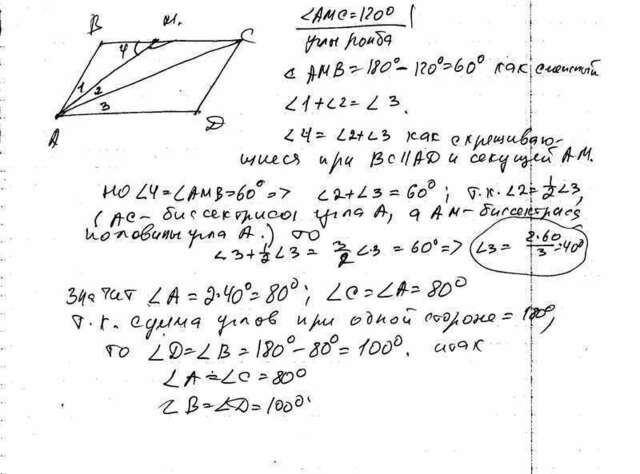 B M. C
4
1 2
3
A D
∠AMC=120°
углы ромба
∠AMB=180°-120°=60° как смежный
∠1+∠2=∠3.
∠4=∠2+∠3 как скрещиваю-
щиеся при BC||AD и секущей AM.
НО ∠4=∠AMB=60° => ∠2+∠3=60°; т.к. ∠2=1/2∠3,
(AC- биссектриса угла A, а AM-биссектриса
половины угла A.) то
∠3+1/2∠3=3/2∠3=60° => ∠3=2·60/3=40°
Значит ∠A=2·40°=80°; ∠C=∠A=80°
т.к. сумма углов при одной стороне=180°,
то ∠D=∠B=180°-80°=100°. итак
∠A=∠C=80°
∠B=∠D=100°.